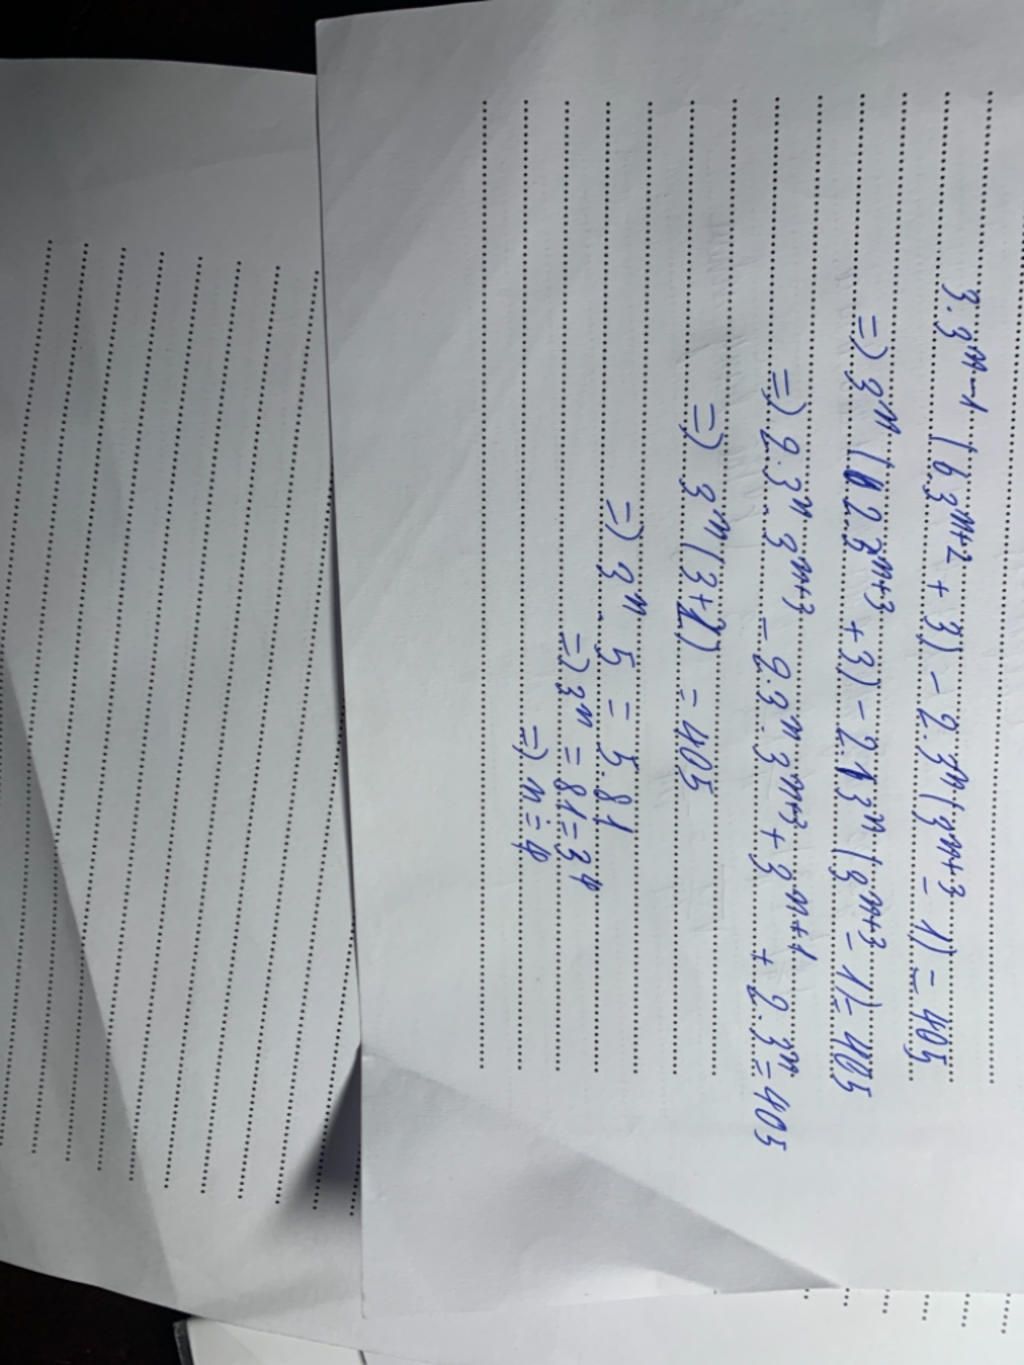 3.3ⁿ⁻¹ (6.3ⁿ⁺² + 3) - 2.3ⁿ(3ⁿ⁺³ - 1) = 405
=) 3ⁿ (2.3ⁿ⁺³ + 3) - 2.3ⁿ (3ⁿ⁺³ - 1) = 405
=) 2.3ⁿ.3ⁿ⁺³ - 2.3ⁿ.3ⁿ⁺³ + 3ⁿ⁺¹ + 2.3ⁿ = 405
=) 3ⁿ (3+2) = 405
=) 3ⁿ.5 = 5.81
=) 3ⁿ = 81 = 3⁴
=) n = 4